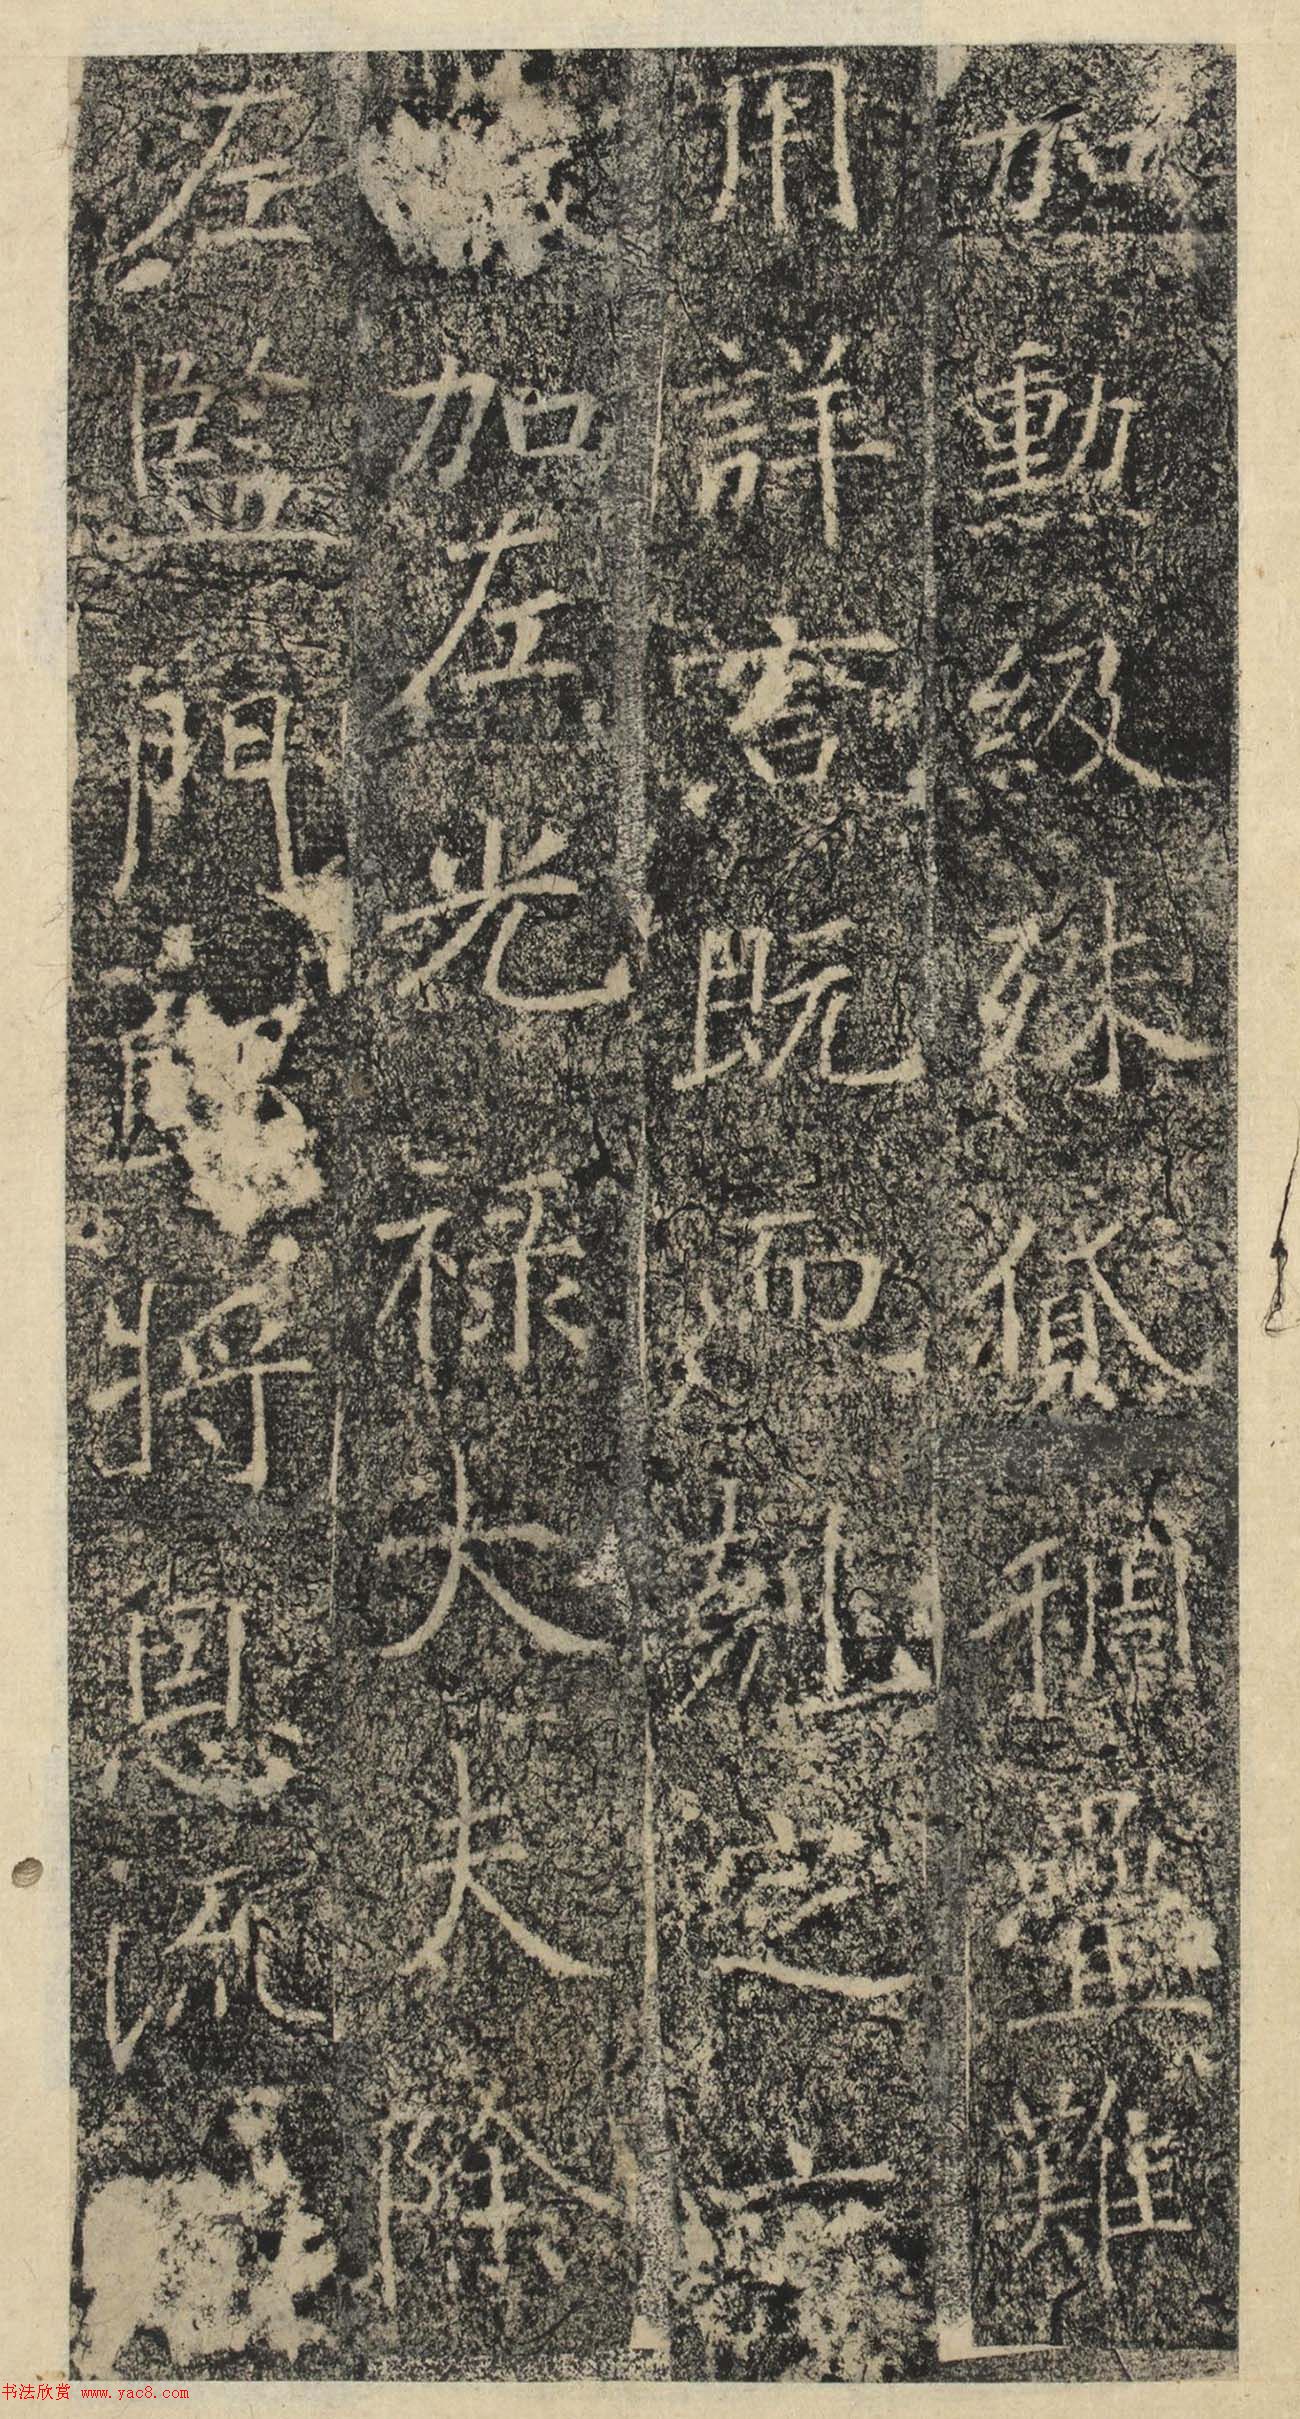 加勳級殊稠疊難
用詳害既而剋之
加左光祿大夫除
左監門將恩流
书法欣赏 www.yac8.com